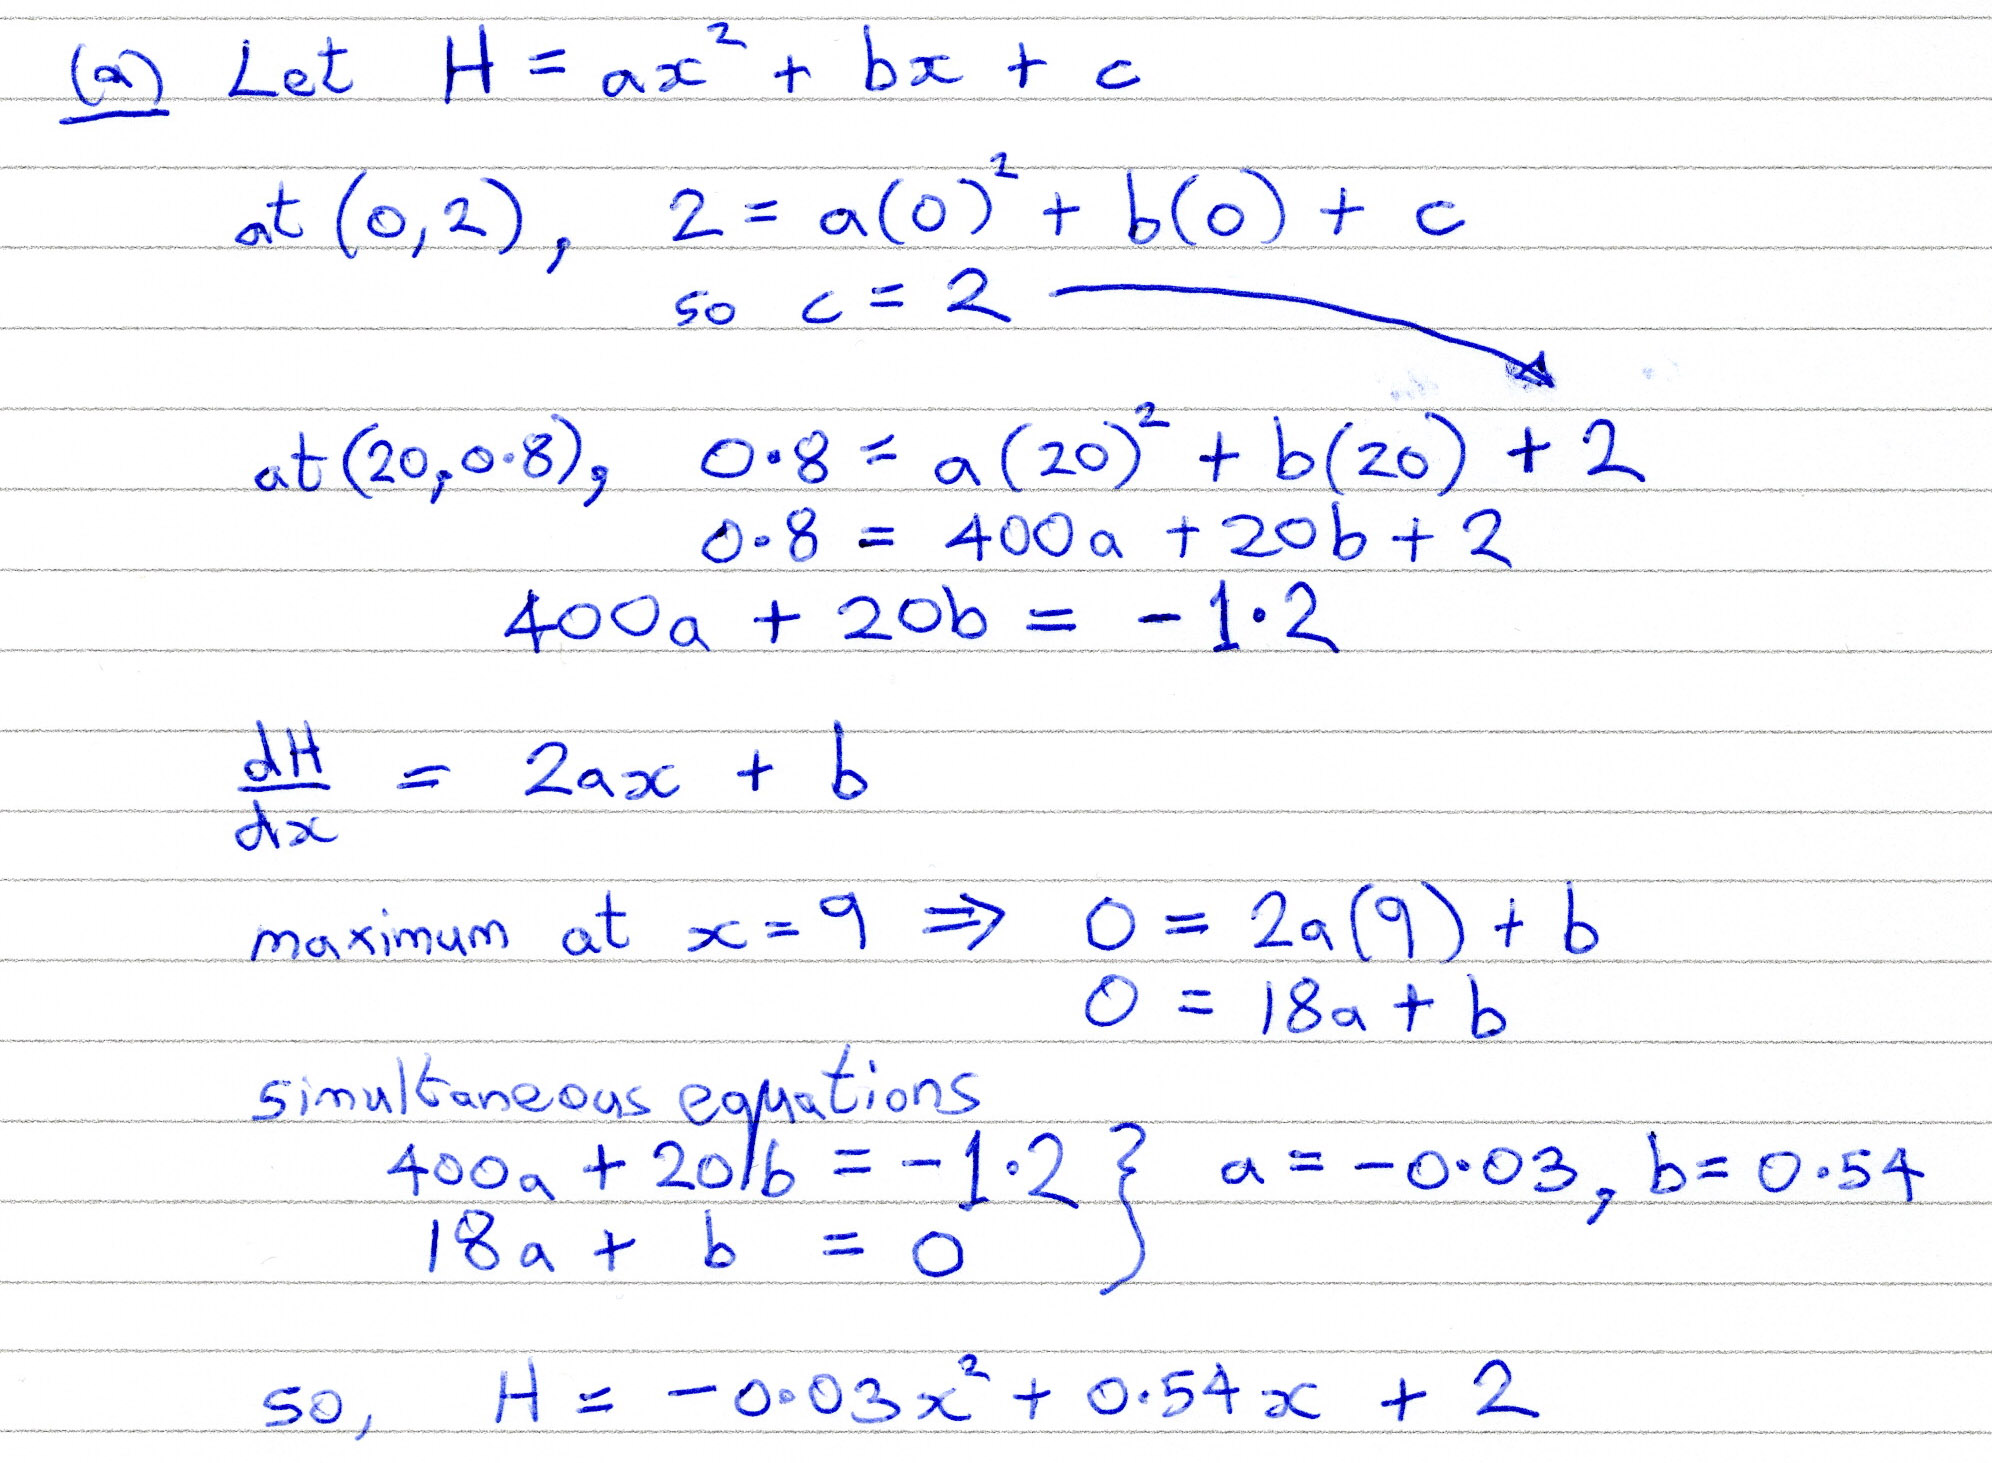 (a) Let H = ax² + bx + c
at (0,2), 2 = a(0)² + b(0) + c
so c = 2
at (20,0·8), 0·8 = a(20)² + b(20) + 2
0·8 = 400a + 20b + 2
400a + 20b = -1·2
dH/dx = 2ax + b
maximum at x = 9 ⇒ 0 = 2a(9) + b
0 = 18a + b
simultaneous equations
400a + 20b = -1·2 } a = -0·03, b = 0·54
18a + b = 0
so, H = -0·03x² + 0·54x + 2